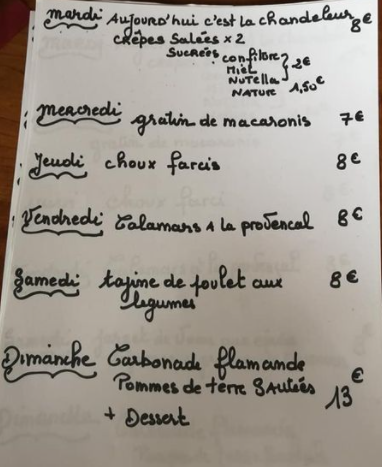 mardi Aujourd'hui c'est la chandeleur 8€
crêpes Salées x 2
Sucrées confiture
Miel 2€
Nutella
Nature 1,50€
Mercredi gratin de macaronis 7€
Jeudi choux farcis 8€
Vendredi Calamars A la provencal 8€
Samedi tajine de poulet aux 8€
legumes
Dimanche Carbonade flamande
Pommes de terre Sautées 13€
+ Dessert